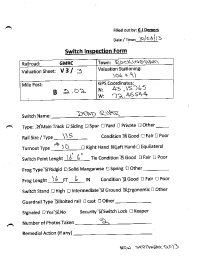 Filled out by: CJ Demers
Date / Time:
Switch Inspection Form
Railroad: GMRC
Town: ROCKINGHAM
Valuation Sheet: V3 / 3
Valuation Stationing:
106 + 91
Mile Post:
B 2.02
GPS Coordinates:
N: 43.15365
W: 72.46564
Switch Name: DEAD RIVER
Type: Main Track Siding Spur Yard Private Other
Rail Size / Type 115 Condition Good Fair Poor
Turnout Type #10 Right Hand Left Hand Equilateral
Switch Point Length 16' 6" Tie Condition Good Fair Poor
Frog Type Rigid Solid Manganese Spring Other
Frog Length 16 FT 6 IN Condition Good Fair Poor
Switch Stand High Intermediate Ground Ergonomic Other
Guardrail Type Bolted rail Cast Other
Signaled Yes No Security Switch Lock Keeper
Number of Photos Taken 2
Remedial Action (if any)